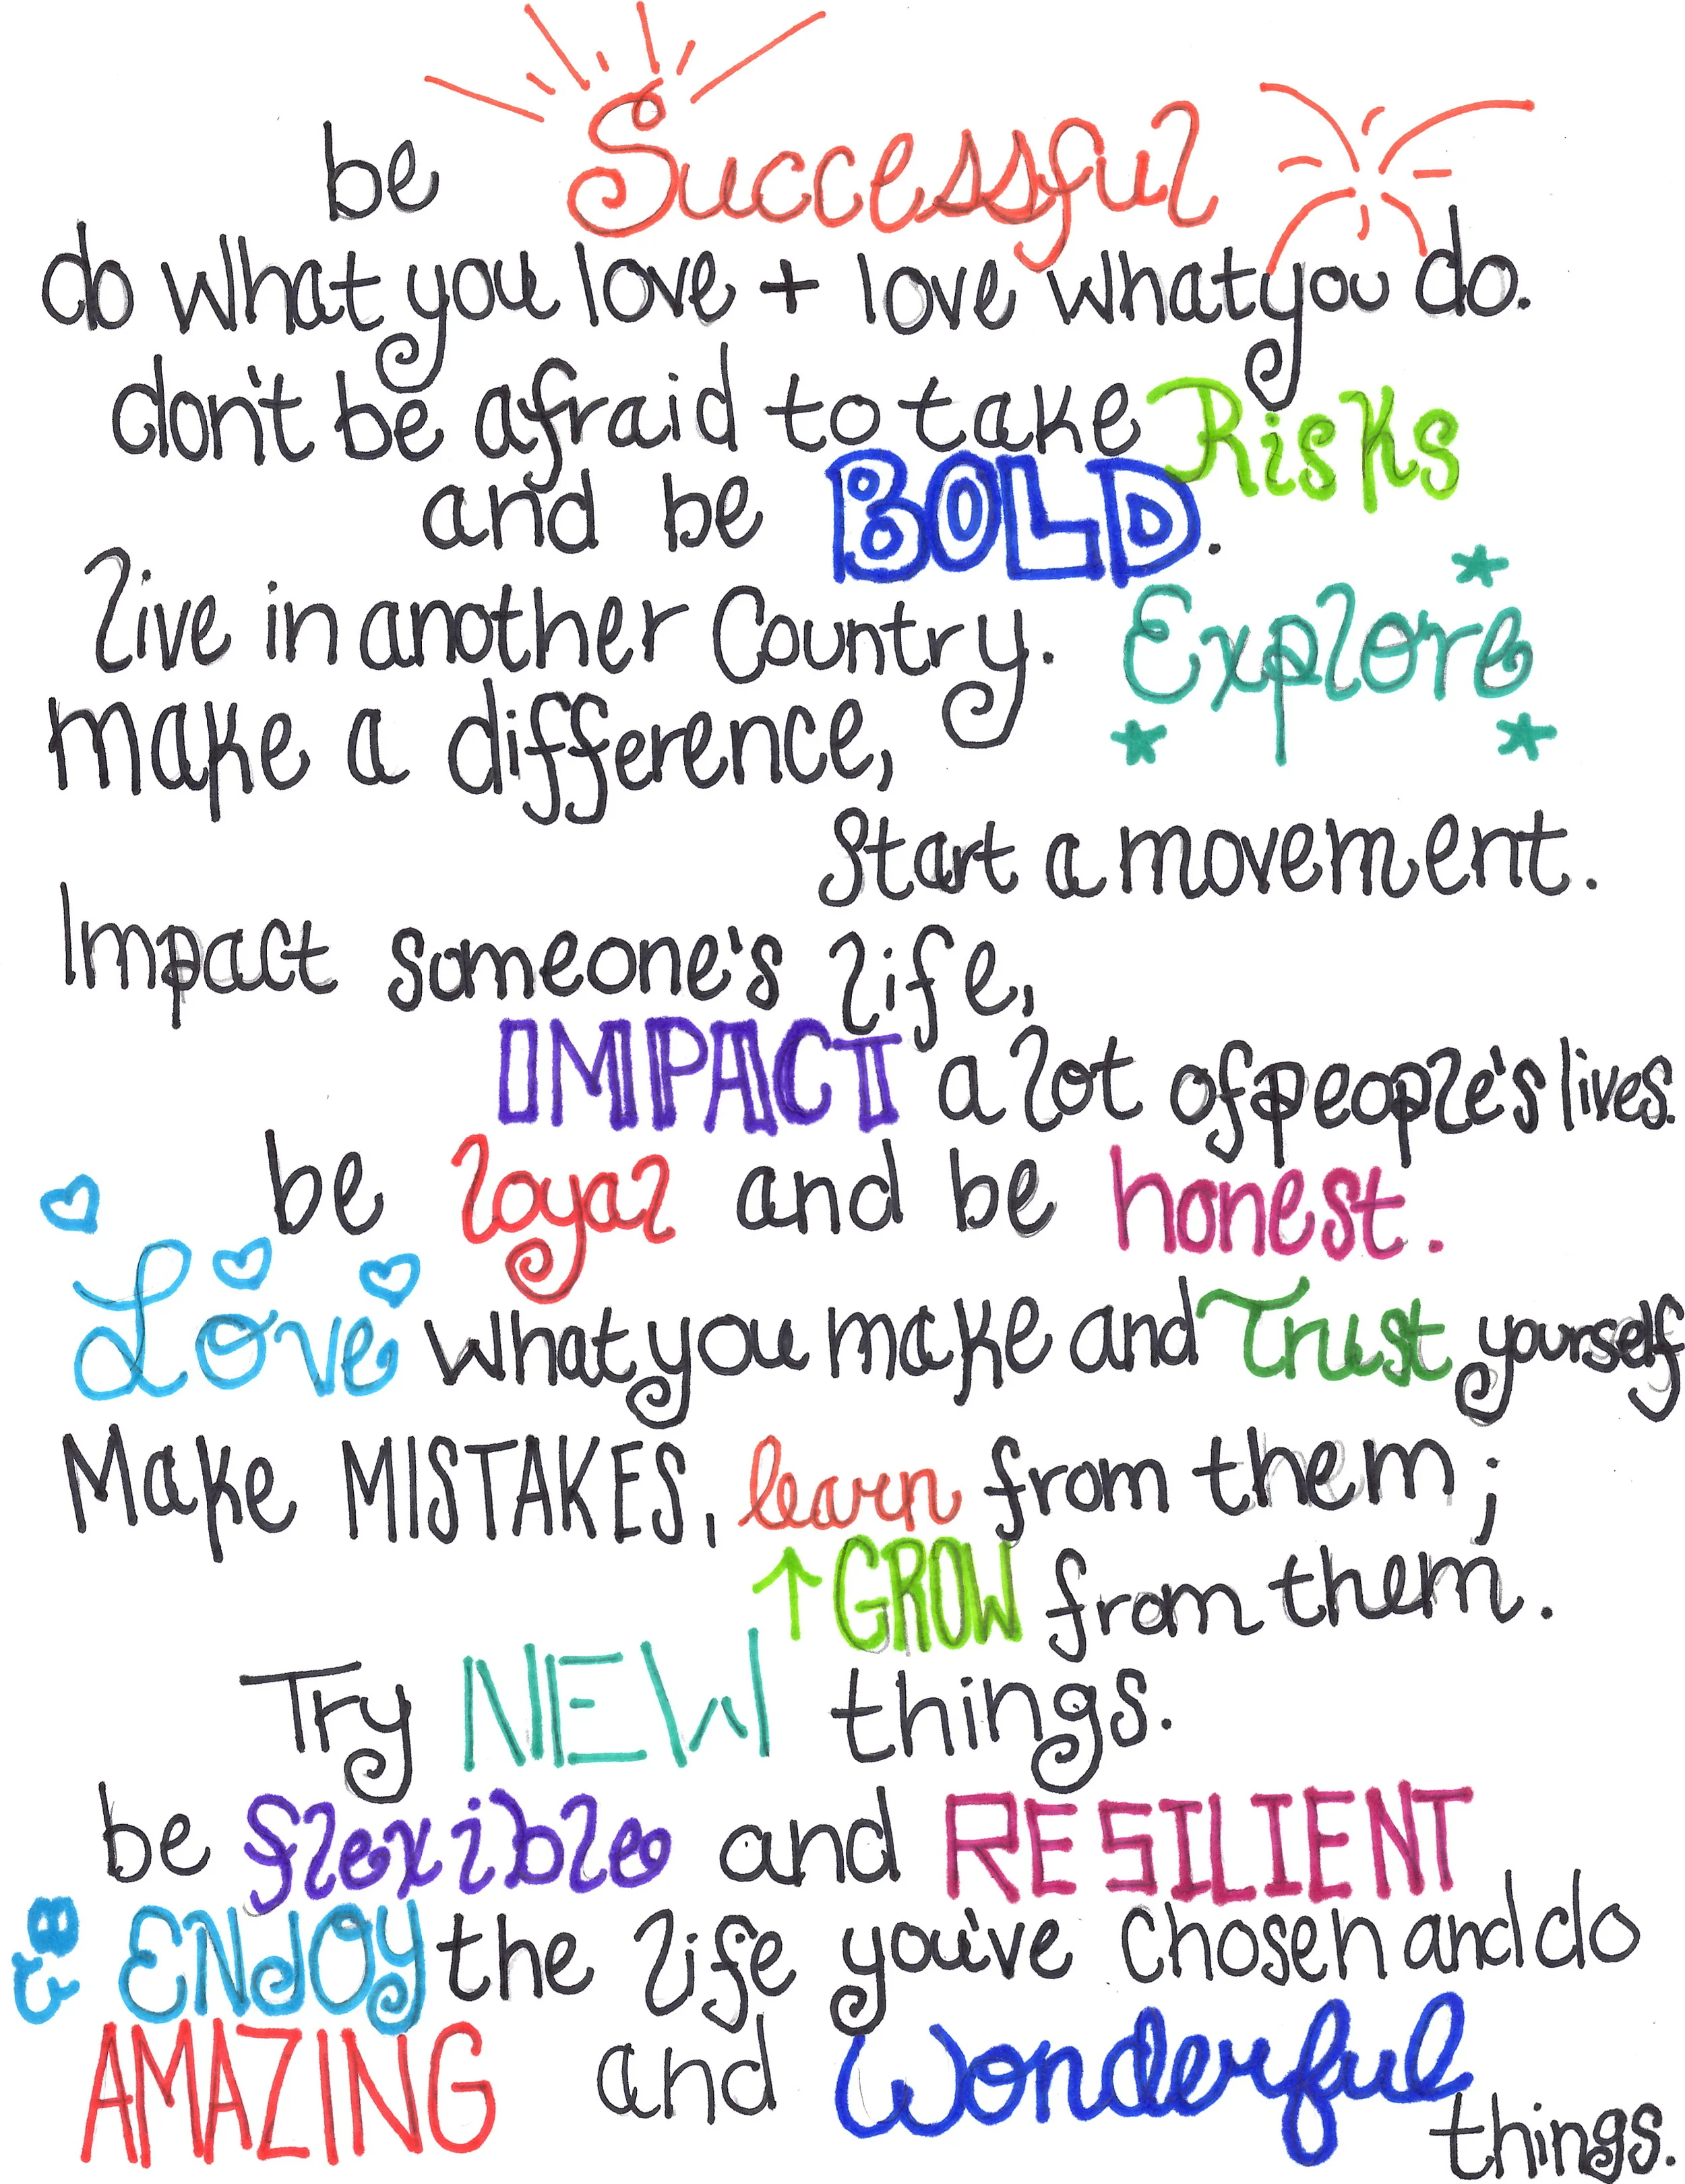 be Successful
do what you love + love what you do.
don't be afraid to take Risks
and be BOLD.
live in another Country. Explore
make a difference,
Start a movement.
Impact someone's life,
IMPACT a lot of people's lives.
be loyal and be honest.
Love what you make and Trust yourself
Make MISTAKES, learn from them;
↑ GROW from them.
Try NEW things.
be flexible and RESILIENT
ENJOY the life you've chosen and do
AMAZING and Wonderful things.